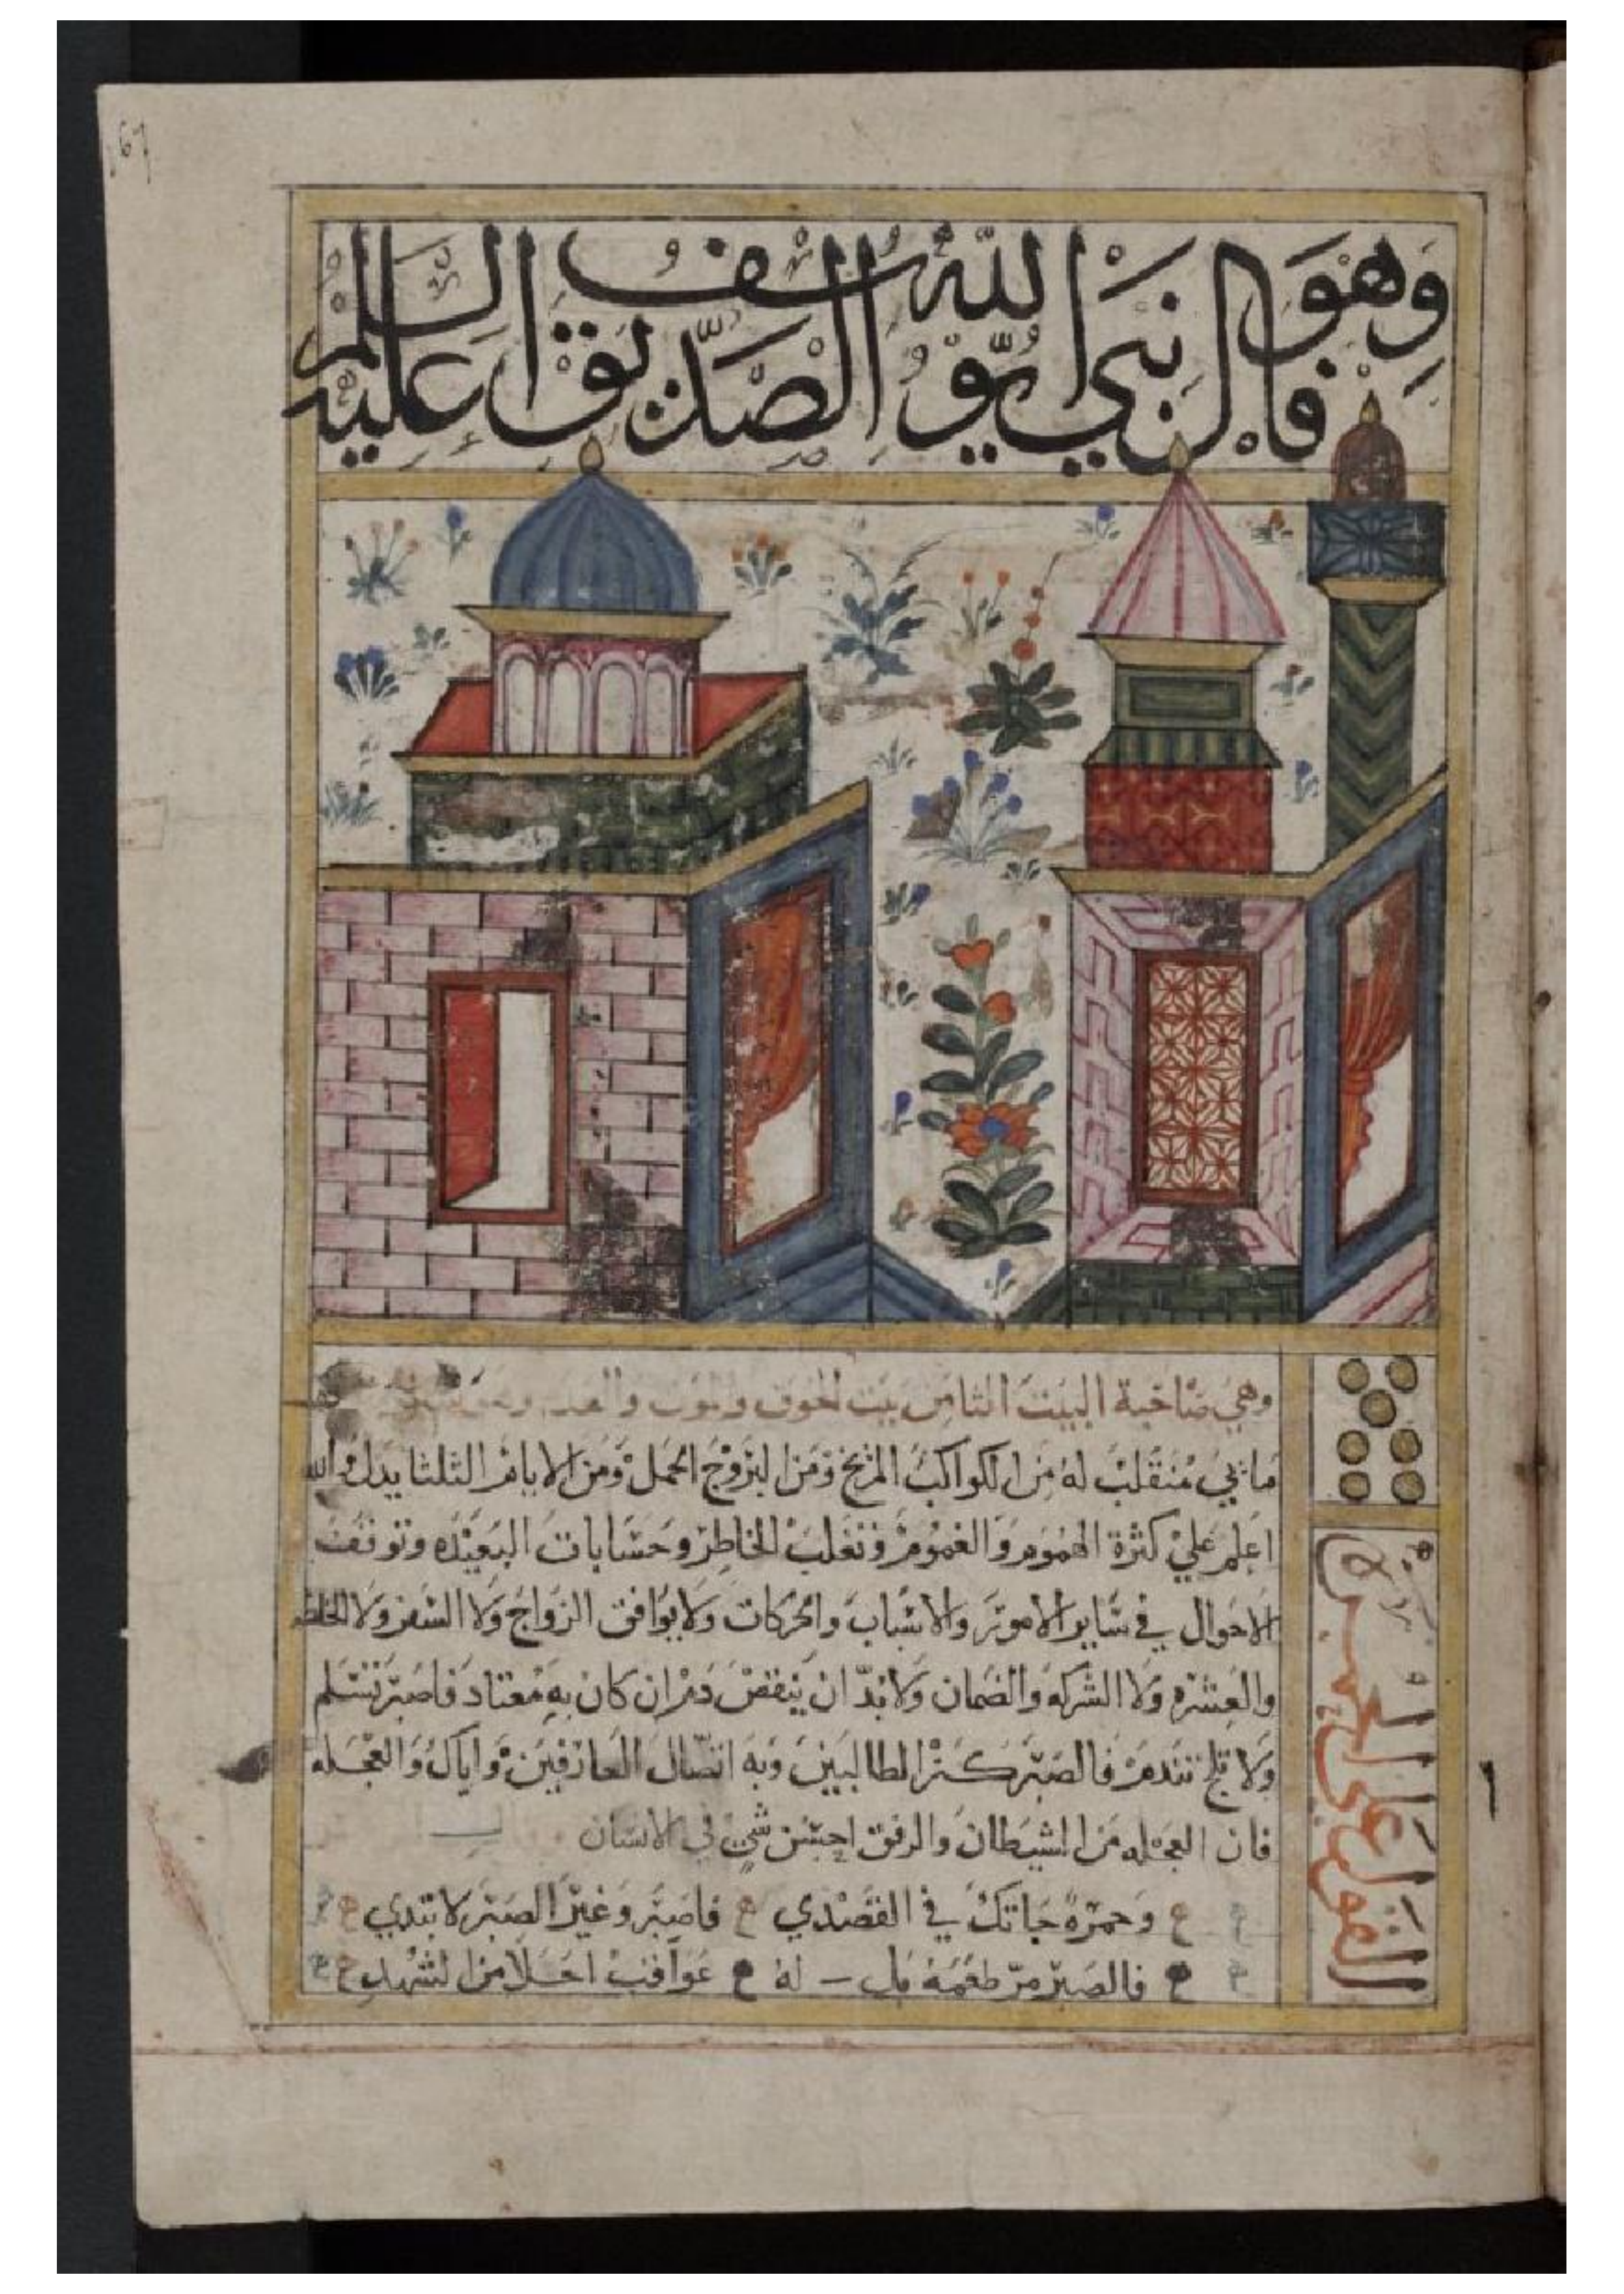 وَهُوَ فَال نَبيّ اللهِ يُوسُف الصِّدّيق عَليهِ السَّلام
وهي صاحبة البيت الثامن بيت الخوف والموت
مايي منقلب له من الكواكب المريخ ومن البروج الحمل ومن الايام الثلثا يدل والله
اعلم علي كثرة الهموم والغموم وتغلب الخاطر وحسابات البعيده وتوقف
الاحوال في ساير الامور والاسباب والحركات ولا يوافق الزواج ولا السفر ولا
والعشره ولا الشركه والضمان ولابد ان ينقص دم ان كان به معتاد فاصبر تسلم
ولا تلج تندم فالصبر كنز الطالبين وبه اتصال العارفين واياك والعجله
فان العجله من الشيطان والرفق احسن شي في الانسان
وحمرة جاتك في القصدي فاصبر وغير الصبر لا تبتدي
فالصبر مر طعمه له عواقب احلا من الشهد
القول علي الحمره
67